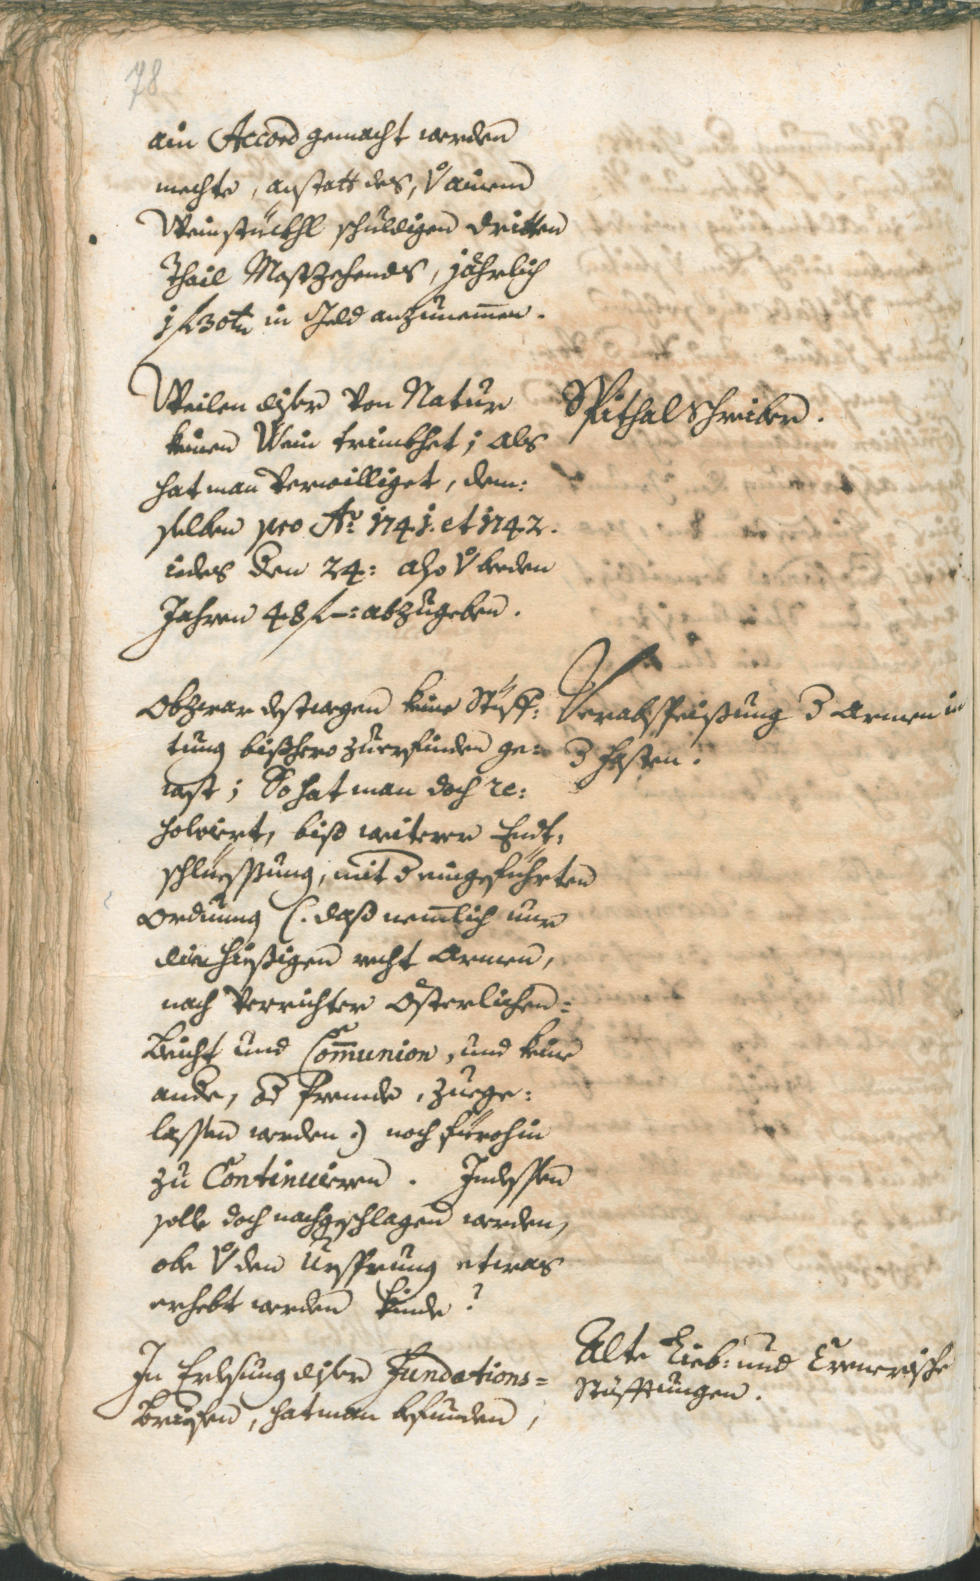 78
ain Accord gemacht werden
mechte, anstatt des, V ainem
Weinstückhl schuldigen dritten
Thail Mostzehends, jährlich
1 f 30 in Geld anzunemen.
Weilen diser von Natur
keinen Wein trinkhet; als
hat man verwilliget, dem:
selben pro Ao 1741. et 1742.
iedes den 24: also V beeden
Jahren 48 f –: abzugeben.
Spithalschreiber.
Obzwar destwegen keine Stüff:
tung bißhero zuerfinden ge:
west; So hat man doch re:
solviert, biß weiterer Endt:
schlüessung, mit d eingeführten
Ordnung (: daß nemlich nur
die hießigen recht Armen,
nach verrichter Österlichen=
Beicht und Communion, und keine
ande, od fremde, zuege:
lassen werden :) noch fürohin
zu Continuieren. Indessen
solle doch nachgeschlagen werden,
obe V den Ursprung etwas
erhebt werden kinde?
Verabspeißung d Armen in
d Fasten.
In Erlesung diser Fundations=
Briefen, hat man befunden,
Alte Lieb: und
Stüfftungen.